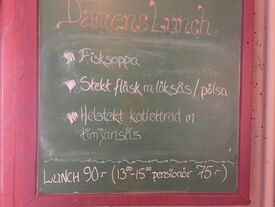 Dagens Lunch
Fisksoppa
Stekt fläsk m löksås/pölsa
Helstekt kotlettrad m
timjansås
LUNCH 90:- (13⁰⁰-15⁰⁰ pensionär 75:-)